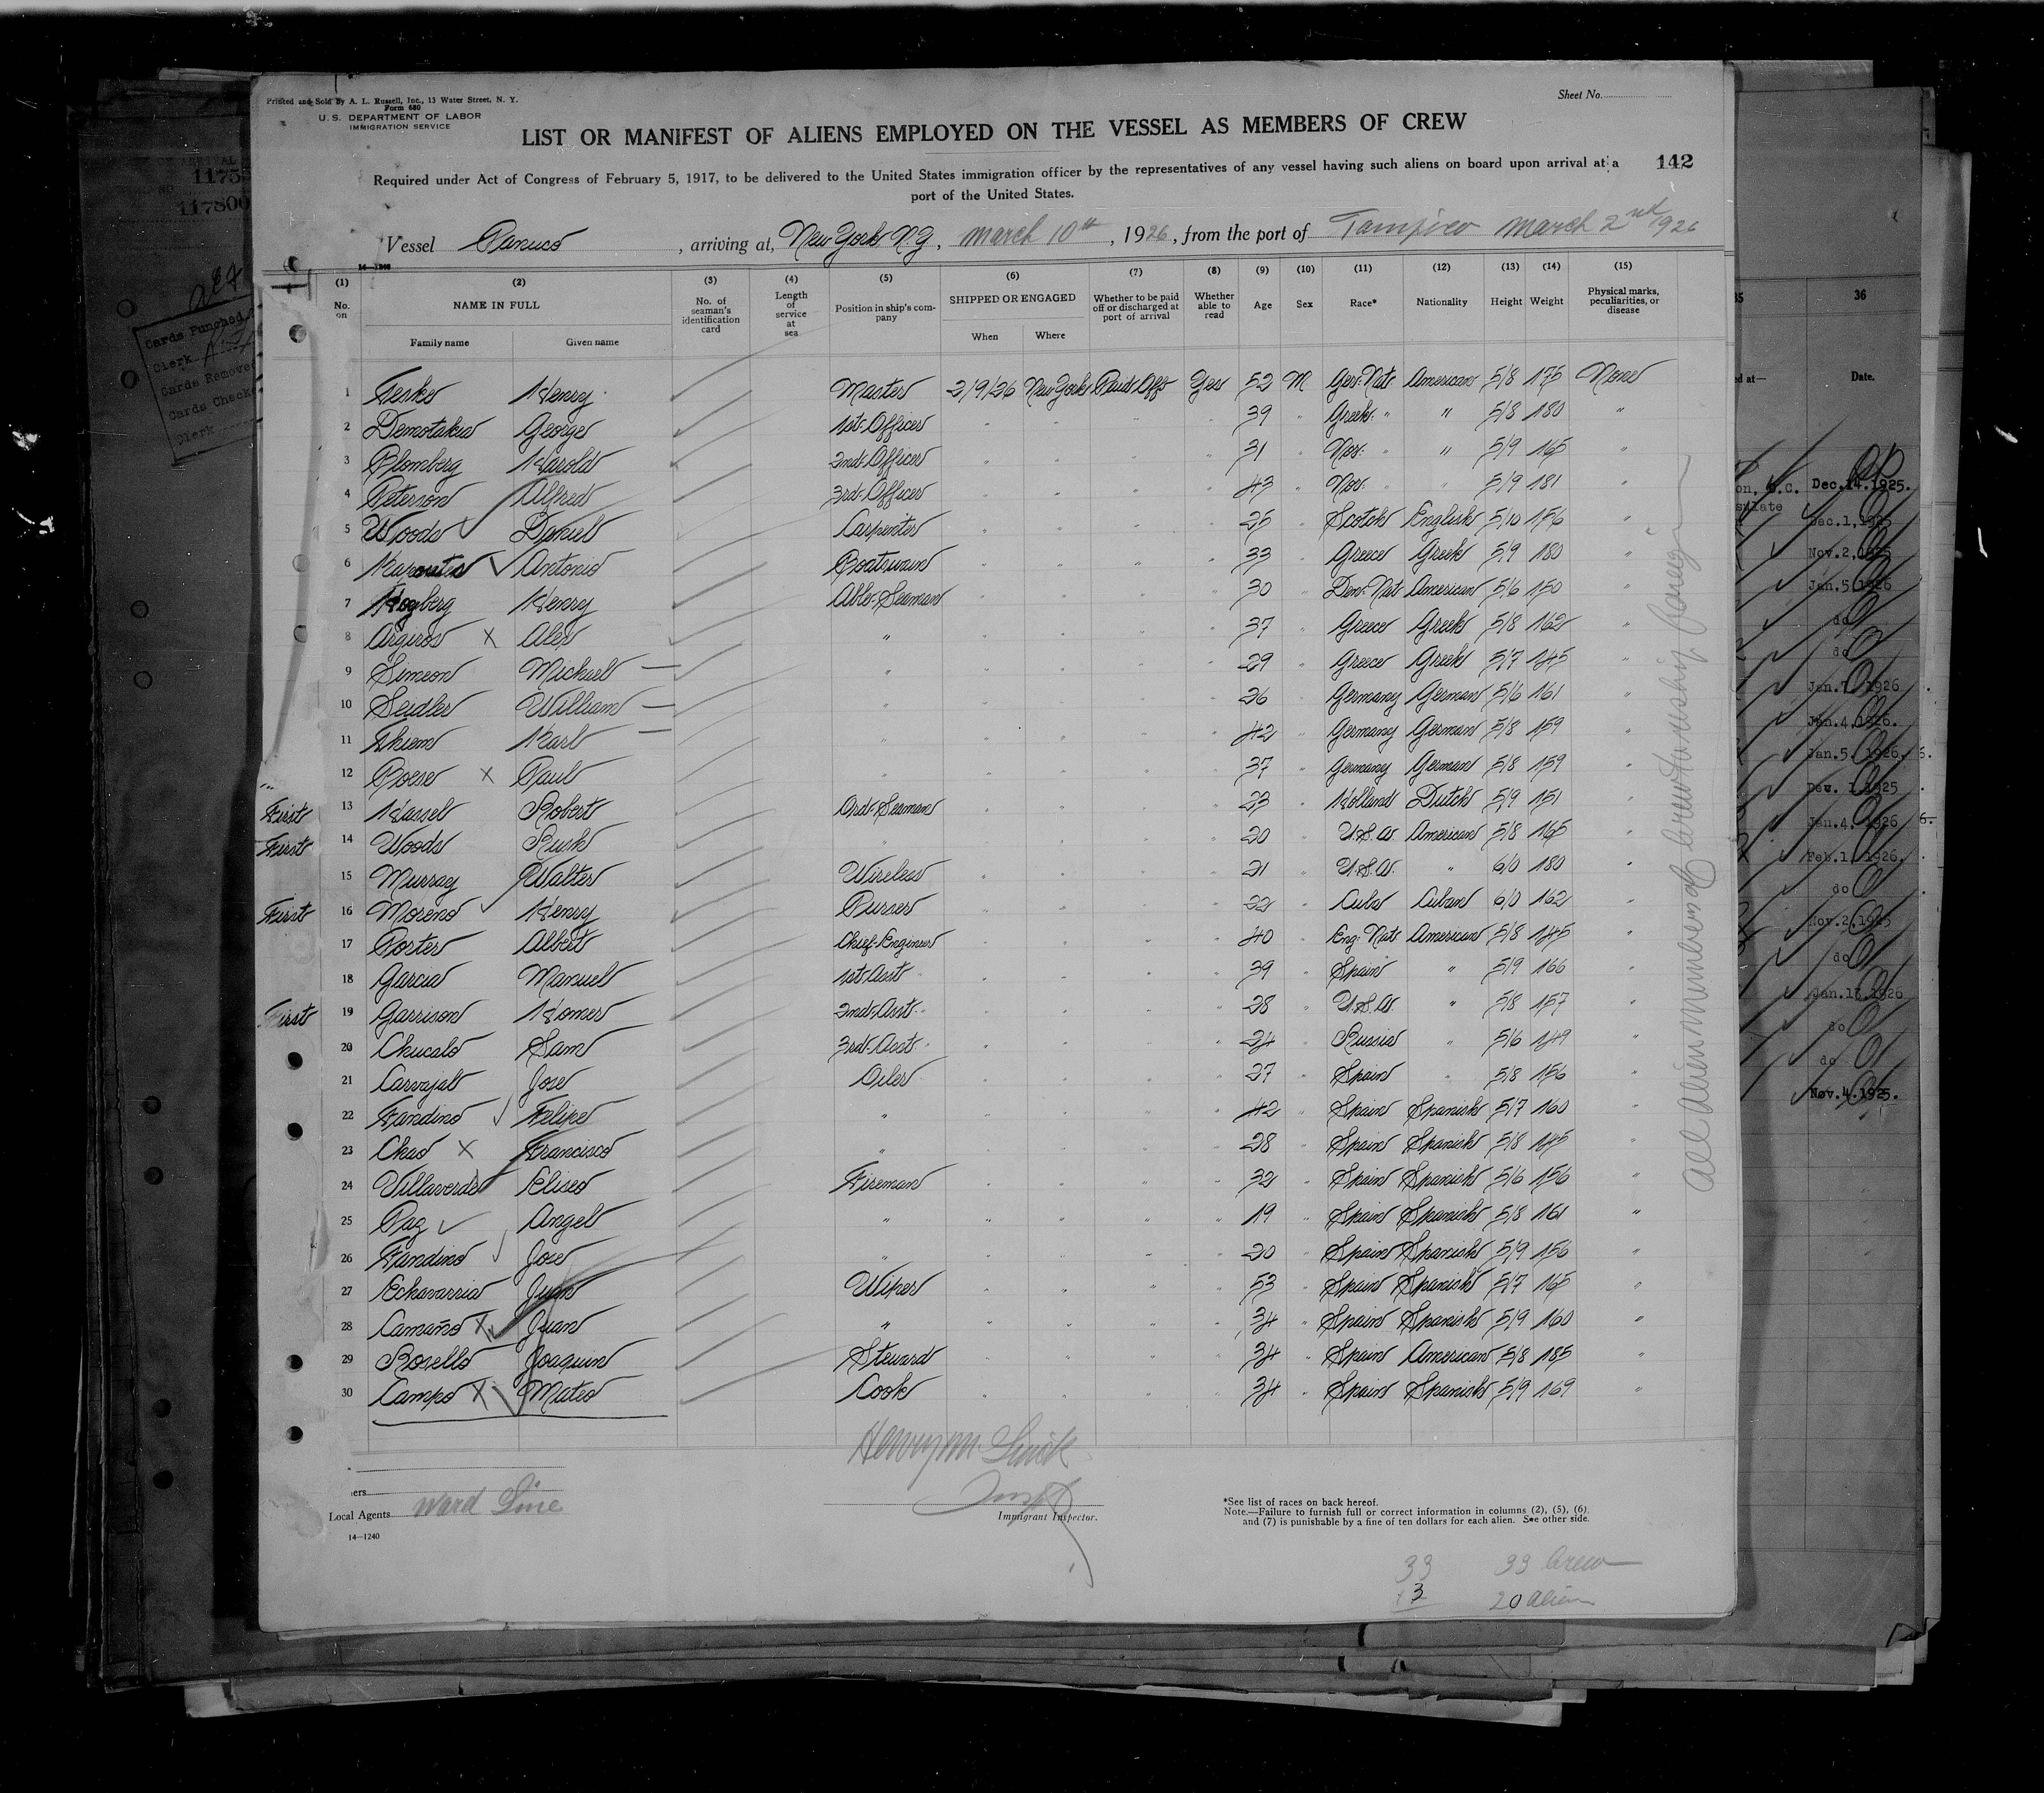 Printed and Sold by A. L. Russell, Inc., 13 Water Street, N. Y.
Form 680
U. S. DEPARTMENT OF LABOR
IMMIGRATION SERVICE
Sheet No.
LIST OR MANIFEST OF ALIENS EMPLOYED ON THE VESSEL AS MEMBERS OF CREW
142
Required under Act of Congress of February 5, 1917, to be delivered to the United States immigration officer by the representatives of any vessel having such aliens on board upon arrival at a
port of the United States.
Vessel Panuco, arriving at, New York N.Y, March 10th, 1926, from the port of Tampico March 2nd 1926
14—1240
(1) (2) (3) (4) (5) (6) (7) (8) (9) (10) (11) (12) (13) (14) (15)
No. on NAME IN FULL Family name Given name No. of seaman's identification card Length of service at sea Position in ship's company SHIPPED OR ENGAGED When Where Whether to be paid off or discharged at port of arrival Whether able to read Age Sex Race* Nationality Height Weight Physical marks, peculiarities, or disease
1 Henry Master 2/9/26 New York Paid Off Yes 52 M Ger. Nat American 5/8 175 None
2 Demotakis George 1st Officer " " " 39 " Greek " " 5/8 180 "
3 Blomberg Harold 2nd Officer " " " 31 " Nor. " " 5/9 165 "
4 Peterson Alfred 3rd Officer " " " 43 " Nor. " " 5/9 181 "
5 Woods Carpenter " " " 25 " Scotch English 5/10 156 "
6 Antonio Boatswain " " " 33 " Greece Greek 5/9 180 "
7 Henry Able Seaman " " " 30 " Den. Nat American 5/6 150 "
8 Argiros X Alex " " " " 37 " Greece Greek 5/8 162 "
9 Simeon Michael — " " " " 29 " Greece Greek 5/7 145 "
10 Seidler William — " " " " 26 " Germany German 5/6 161 "
11 Karl — " " " " 42 " Germany German 5/8 159 "
12 Boese X Paul " " " " 37 " Germany German 5/8 159 "
First 13 Hassel Robert Ord. Seaman " " " 23 " Holland Dutch 5/9 151 "
First 14 Woods Rush " " " " 20 " U.S.A. American 5/8 165 "
15 Murray Walter Wireless " " " 21 " U.S.A. " 6/0 180 "
First 16 Moreno Henry Purser " " " 22 " Cuba Cuban 6/0 162 "
17 Porter Albert Chief Engineer " " " 40 " Eng. Nat American 5/8 145 "
18 Garcia Manuel 1st Asst " " " 39 " Spain " 5/9 166 "
First 19 Garrison Homer 2nd Asst " " " 28 " U.S.A. " 5/8 157 "
20 Chucalo Sam 3rd Asst " " " 24 " Russia " 5/6 149 "
21 Carvajal Jose Oiler " " " 27 " Spain " 5/8 156 "
22 Fandino Felipe " " " " 42 " Spain Spanish 5/7 160 "
23 Chao X Francisco " " " " 28 " Spain Spanish 5/8 145 "
24 Villaverde Eliseo Fireman " " " 32 " Spain Spanish 5/6 156 "
25 Paz Angel " " " " 19 " Spain Spanish 5/8 161 "
26 Fandino Jose " " " " 20 " Spain Spanish 5/9 156 "
27 Echavarria Juan Wiper " " " 53 " Spain Spanish 5/7 165 "
28 Camaño X Juan " " " " 34 " Spain Spanish 5/9 160 "
29 Rosello Joaquin Steward " " " 34 " Spain American 5/8 185 "
30 Campo X Mateo Cook " " " 34 " Spain Spanish 5/9 169 "
Local Agents Ward Line
Immigrant Inspector.
14—1240
*See list of races on back hereof.
Note.—Failure to furnish full or correct information in columns (2), (5), (6),
and (7) is punishable by a fine of ten dollars for each alien. See other side.
33 33 Crew
13 20 Alien
All alien members of crew
11755
117800
Cards Punched
Clerk
Cards Removed
Cards Checked
Clerk
35 36
ed at— Date.
on, D.C. Dec.14.1925.
sulate
Dec.1,1925
Nov.2,1925
Jan.5,1926
do
do
Jan.7,1926
Jan.4,1926.
Jan.5,1926,
Jan.4,1926
Feb.1,1926,
do
Nov.2,1925
do
Jan.13,1926
do
do
Nov.4.1925.